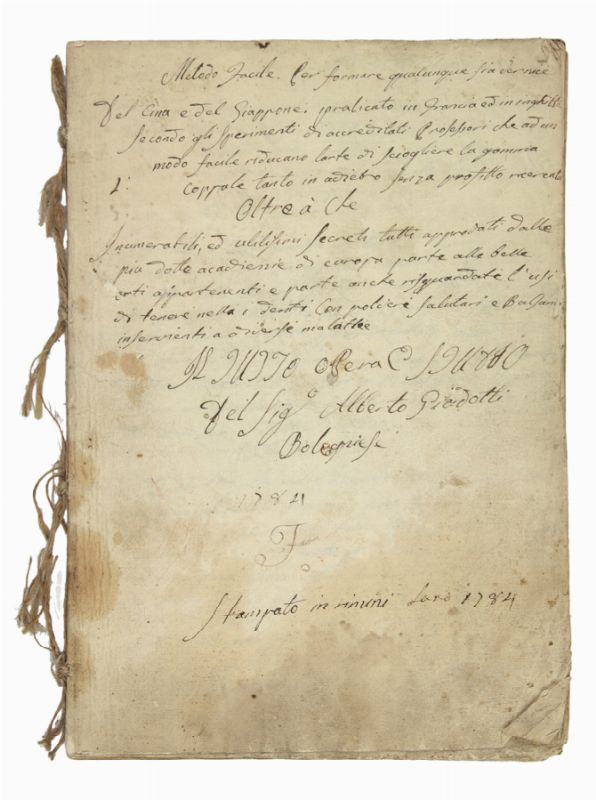 Metodo Facile. Per formare qualunque sia vernice
Del Cina e del Giappone. praticato in Francia ed in inghilt
secondo gli sperimenti di accreditati Professori che ad un
modo facile riducano larte di sciogliere la gomma
L' Coppale tanto in adietro senza profitto ricercata
Oltre à che
Inumerabili, ed utilisimi secreti tutti approvati dalle
più dotte acadiemie di europa parte alle belle
arti appartenenti e parte anche risguardate l' usi
di tenere netta i denti con poliere salutari e Balsami
inservienti a diverse malattie
IL TUTTO Opera E
Del Sig Alberto Giodotti
Bolognese
1784
F
Stampato in rimini Lano 1784